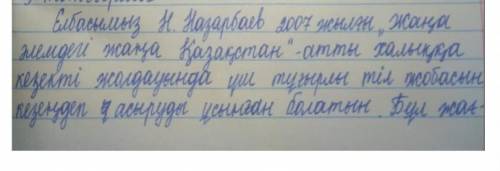 Елбасымыз Н. Назарбаев 2007 жылғы „Жаңа
әлемдегі жаңа Қазақстан"-атты халыққа
кезекті жолдауында үш тұғырлы тіл жобасын
кезеңдеп асыруды ұсынған болатын. Бұл жаһ-